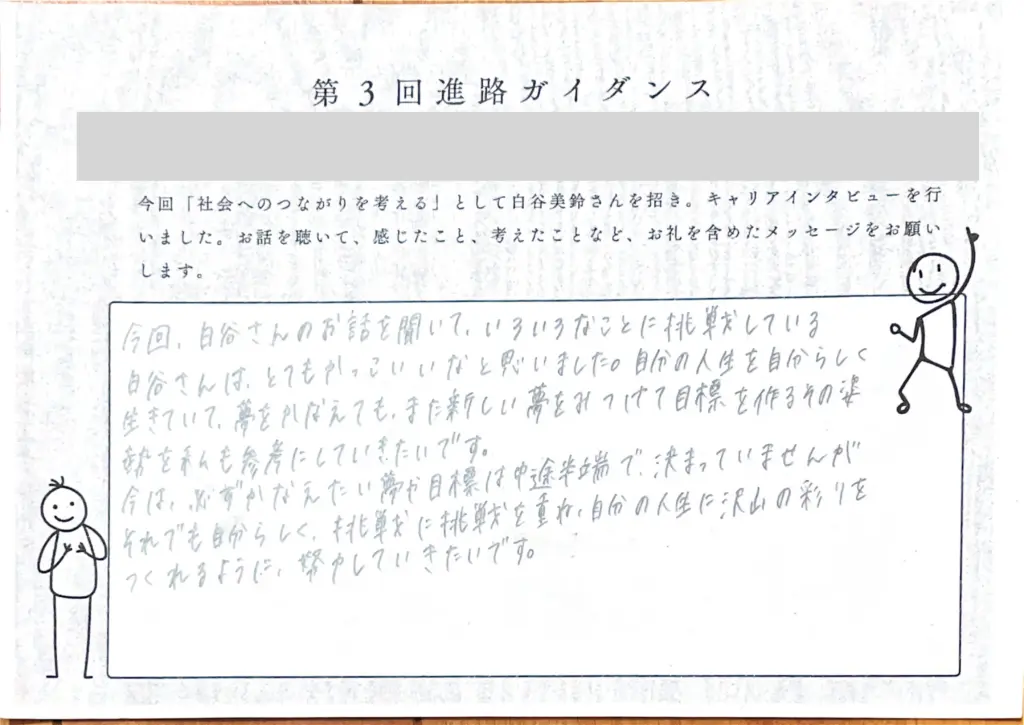 第3回進路ガイダンス
今回「社会へのつながりを考える」として白谷美鈴さんを招き。キャリアインタビューを行
いました。お話を聴いて、感じたこと、考えたことなど、お礼を含めたメッセージをお願い
します。
今回、白谷さんのお話を聞いて、いろいろなことに挑戦している
白谷さんは、とてもかっこいいなと思いました。自分の人生を自分らしく
生きていて、夢をかなえても、また新しい夢をみつけて目標を作るその姿
勢を私も参考にしていきたいです。
今は、必ずかなえたい夢や目標は中途半端で、決まっていませんが
それでも自分らしく、挑戦に挑戦を重ね、自分の人生に沢山の彩りを
つくれるように、努力していきたいです。